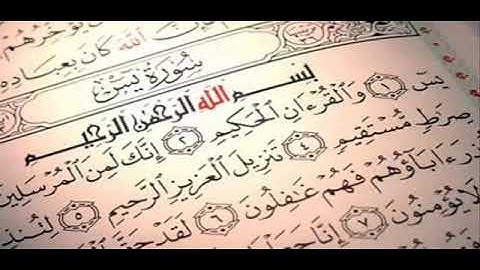 يُؤَخِّرُهُمْ
ٱللَّهَ كَانَ بِعِبَادِهِ
سُورَةُ يسٓ
بِسْمِ ٱللَّهِ ٱلرَّحْمَٰنِ ٱلرَّحِيمِ
يسٓ ١ وَٱلْقُرْءَانِ ٱلْحَكِيمِ ٢ إِنَّكَ لَمِنَ ٱلْمُرْسَلِينَ
صِرَٰطٍ مُّسْتَقِيمٍ ٤ تَنزِيلَ ٱلْعَزِيزِ ٱلرَّحِيمِ ٥ لِتُنذِ
ذِرَ ءَابَآؤُهُمْ فَهُمْ غَٰفِلُونَ ٦ لَقَدْ حَقَّ
لَا يُؤْمِنُونَ ٧ إِنَّا جَعَلْنَا